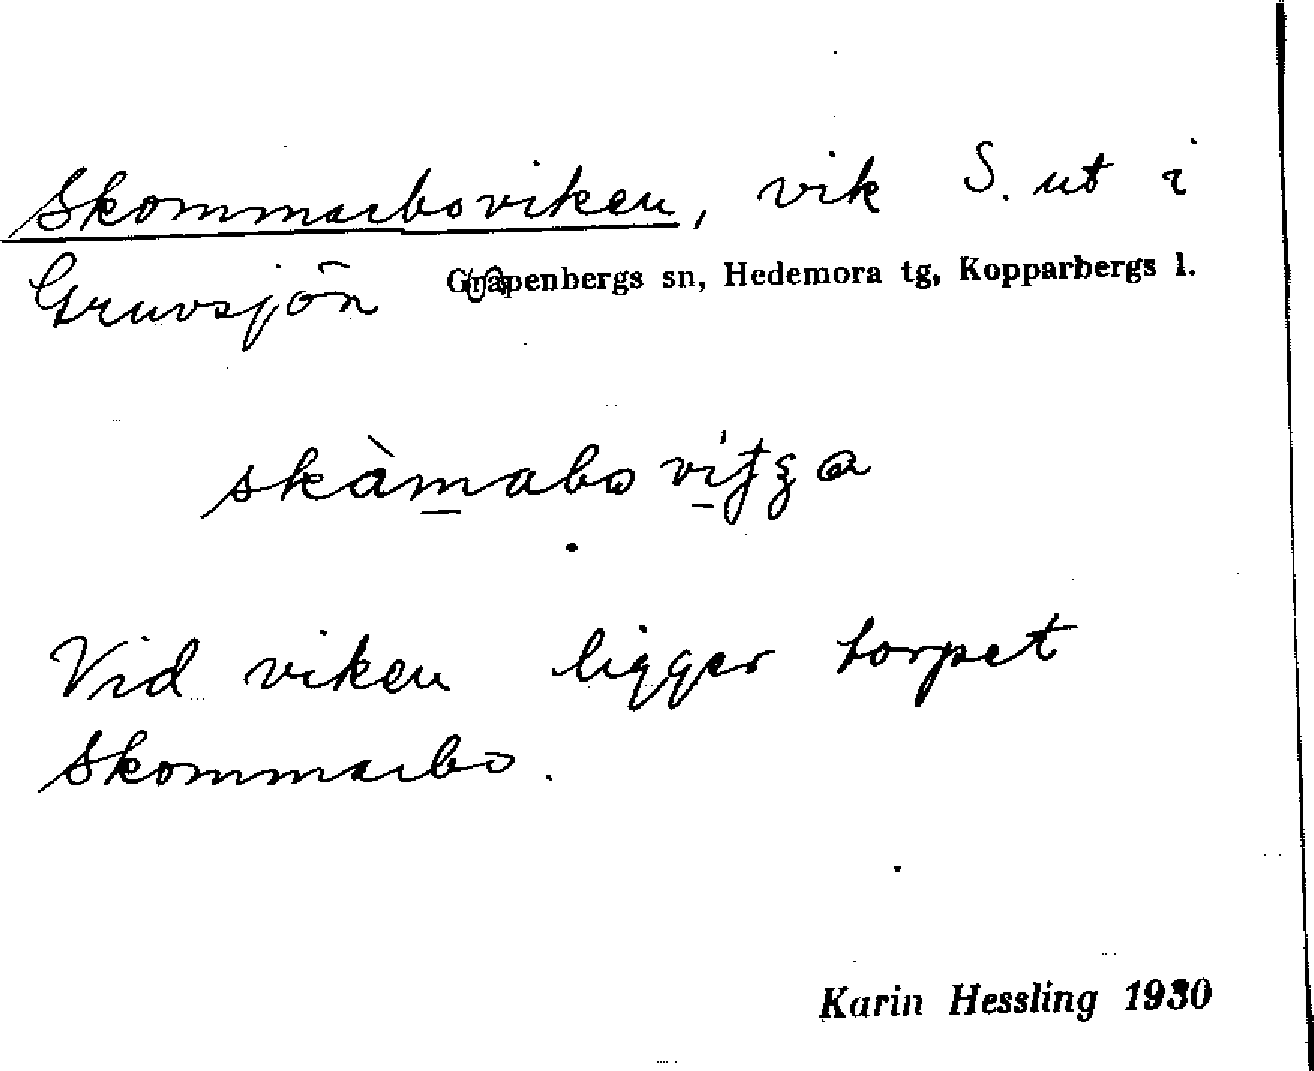 Skommarboviken, vik S. ut i
Gruvsjön Garpenbergs sn, Hedemora tg, Kopparbergs l.
Vid viken ligger torpet
Skommarbo.
Karin Hessling 1930